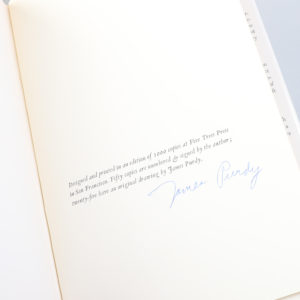 Designed and printed in an edition of 1000 copies at Five Trees Press
in San Francisco. Fifty copies are numbered & signed by the author;
twenty-five have an original drawing by James Purdy.
James Purdy